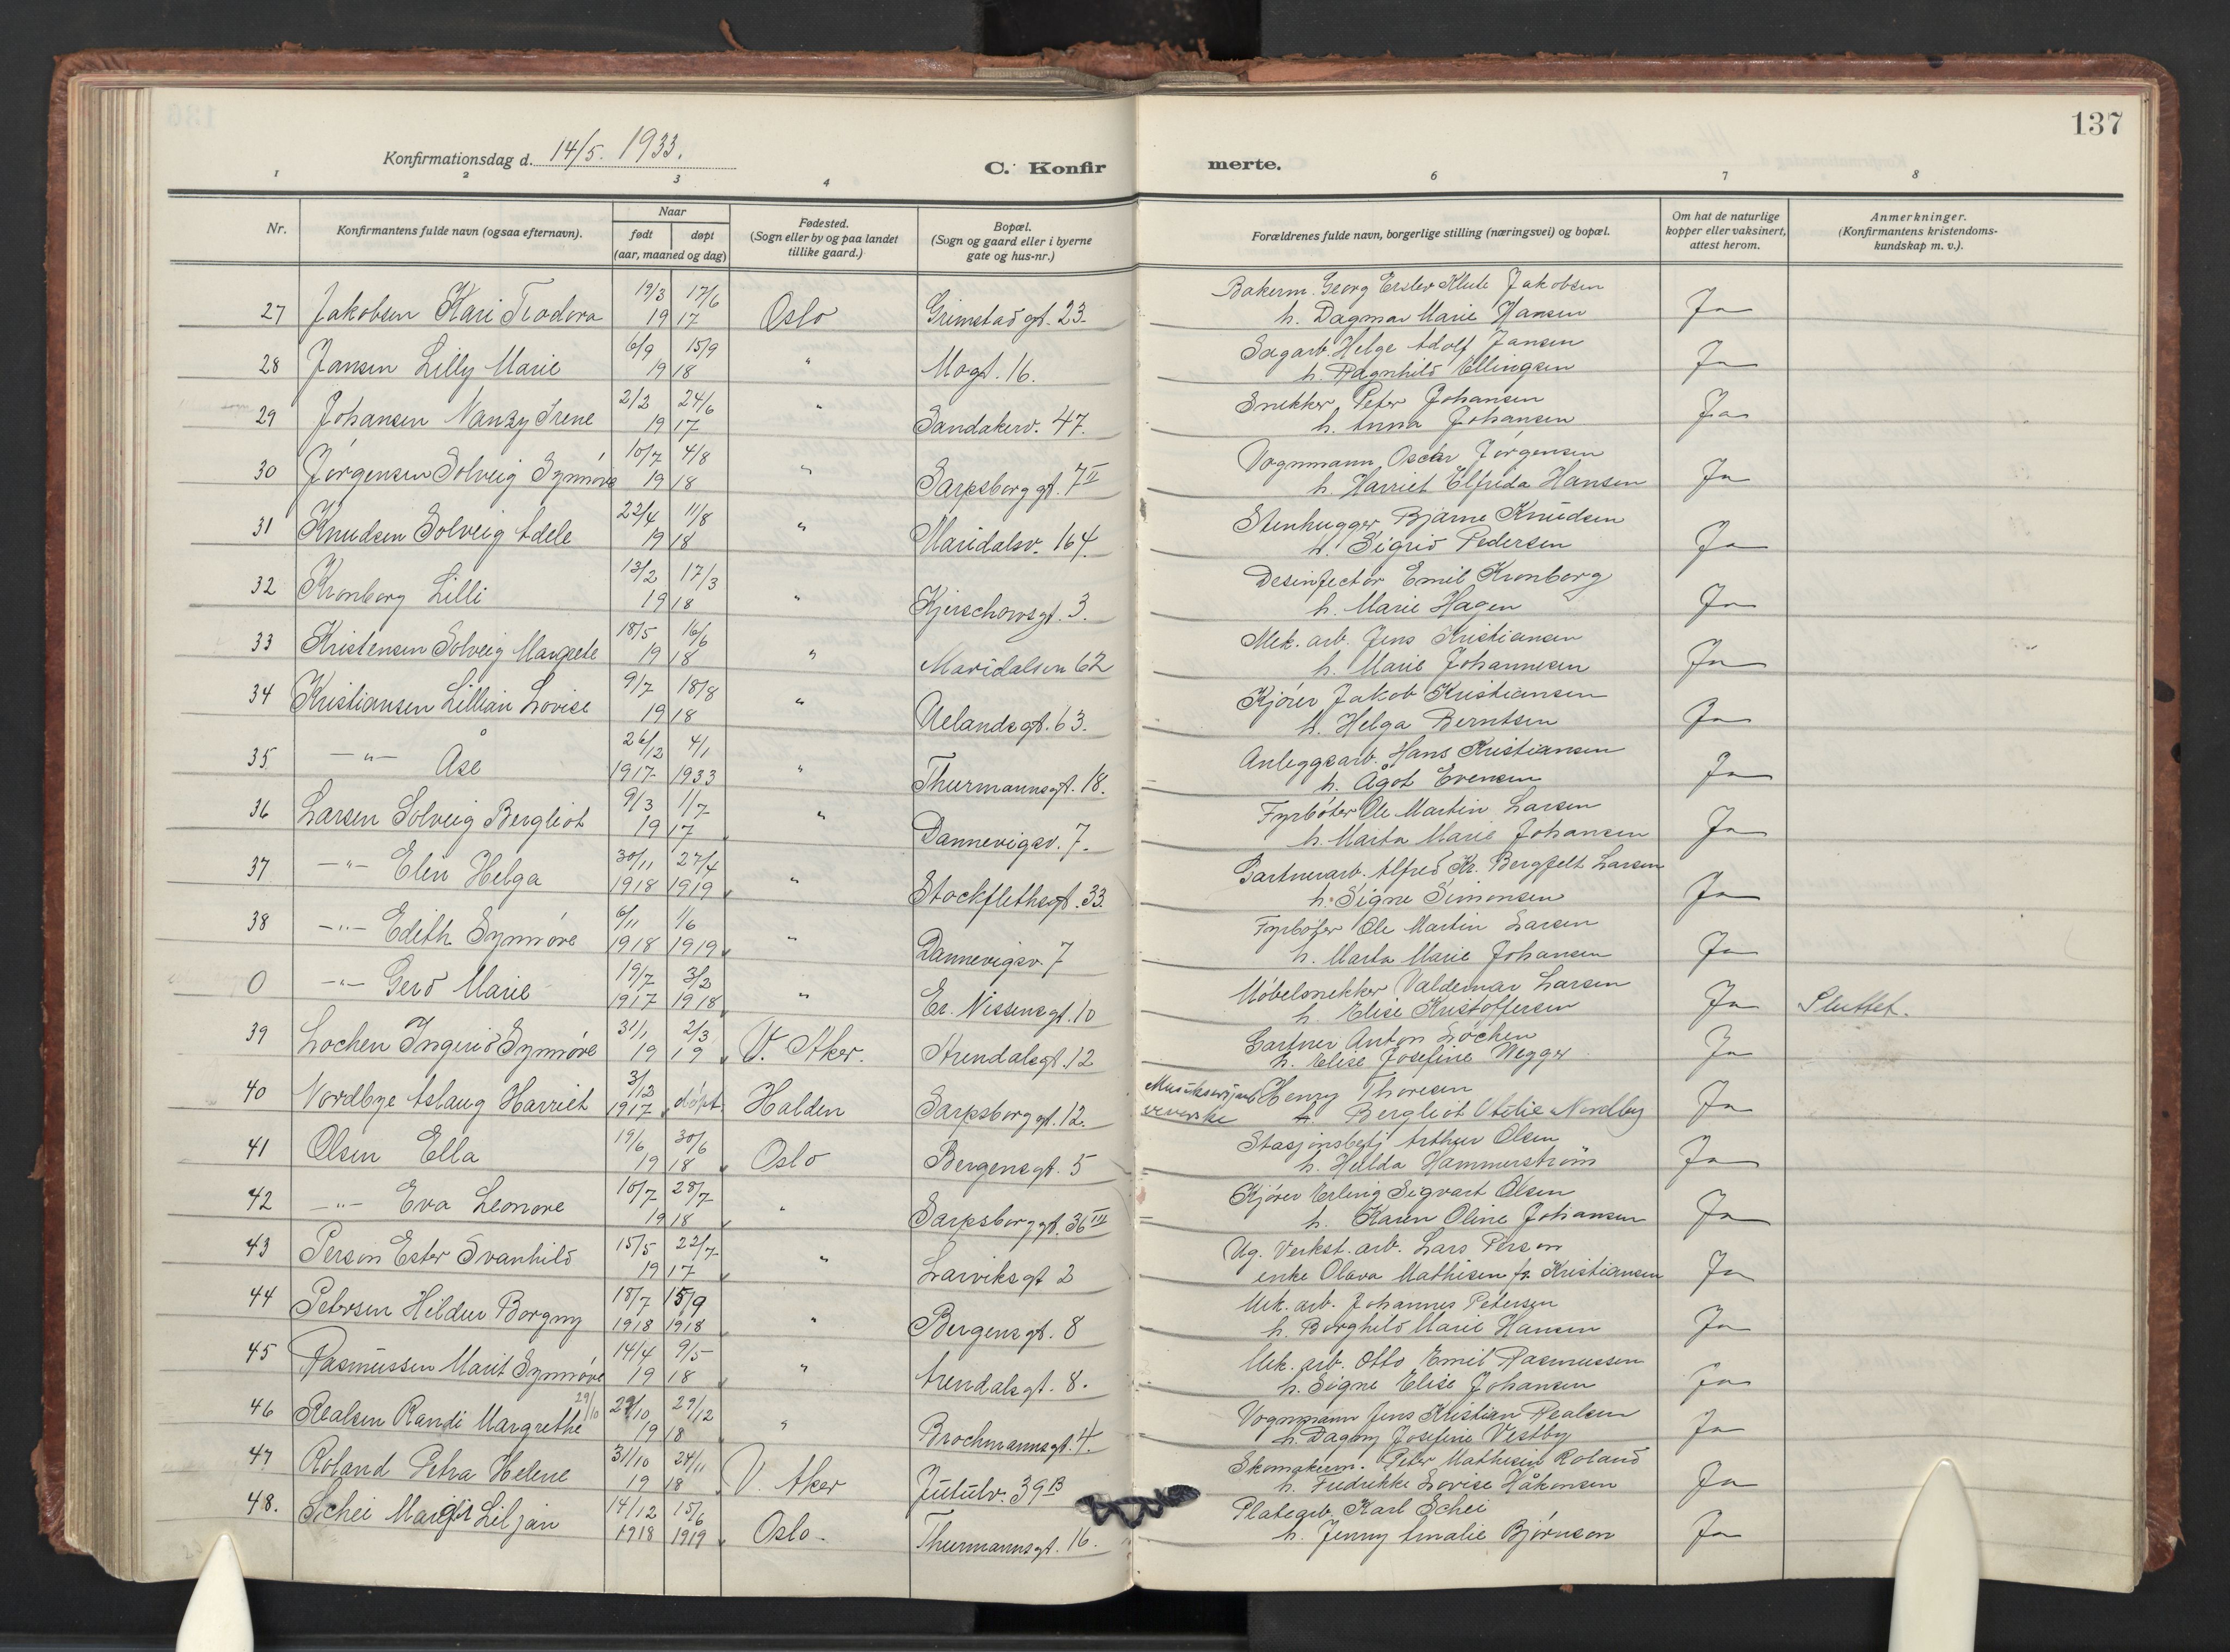 137
Konfirmationsdag d. 14/5. 1933.
C. Konfir merte.
1 2 3 4 6 7 8
Nr. Konfirmantens fulde navn (ogsaa efternavn). Naar født døpt (aar, maaned og dag) Fødested. (Sogn eller by og paa landet tillike gaard.) Bopæl. (Sogn og gaard eller i byerne gate og hus-nr.) Forældrenes fulde navn, borgerlige stilling (næringsvei) og bopæl. Om hat de naturlige kopper eller vaksinert, attest herom. Anmerkninger. (Konfirmantens kristendoms-kundskap m. v.).
19/3 17/6 Bakerm. Georg Erslev Jakobsen
27 Jakobsen Kari Teodora 19 17 Oslo Grimstadgt. 23. h. Dagmar Marie Hansen Ja
6/9 15/9 Sagarb. Helge Adolf Jansen
28 Jansen Lilly Marie 19 18 " Mogt. 16. h. Ragnhild Ellingsen Ja
24/6 Snekker Peter Johansen
29 Johansen Nanzy Irene 19 17 " Sandakerv. 47. h. Anna Johansen Ja
10/7 4/8 Vognmann Oscar Jørgensen
30 Jørgensen Solveig Synnøve 19 18 " Sarpsborggt. 7 II h. Harriet Elfrida Hansen Ja
22/4 11/8 Stenhugger Bjarne Knudsen
31 Knudsen Solveig Adele 19 18 " Maridalsv. 164. h. Sigrid Pedersen Ja
13/2 17/3 Desinfector Emil Kronborg
32 Kronborg Lilli 19 18 " Kierschowsgt. 3. h. Marie Hagen Ja
18/5 16/6 Mek. arb. Jens Kristiansen
33 Kristensen Solveig Margrete 19 18 " Maridalsvn 62 h. Marie Johannesen Ja
9/7 18/8 Kjører Jakob Kristiansen
34 Kristiansen Lillian Lovise 19 18 " Uelandsgt. 63. h. Helga Berntsen Ja
26/12 4/1 Anleggsarb. Hans Kristiansen
35 —"— Åse 1917 1933 " Thurmannsgt. 18. h. Ågot Evensen Ja
9/3 1/7 Fyrbøter Ole Martin Larsen
36 Larsen Solveig Bergliot 19 17 " Dannevigsv. 7. h. Marta Marie Johansen Ja
30/11 27/4 Gartnerarb. Alfred Kr. Bergfelt Larsen
37 —"— Elin Helga 1918 1919 " Stockflethsgt. 33. h. Signe Simonsen Ja
6/11 1/6 Fyrbøter Ole Martin Larsen
38 —"— Edith Synnøve 1918 1919 " Dannevigsv. 7 h. Marta Marie Johansen Ja
19/7 3/2 Møbelsnekker Valdemar Larsen
0 —"— Gerd Marie 1917 1918 " Er. Nissensgt. 10 h. Elise Kristoffersen Ja Sluttet.
31/1 2/3 Gartner Anton Løchen
39 Lochen Ingerid Synnøve 19 19 V. Aker. Arendalsgt. 12 h. Elise Josefine Wegger Ja
3/12 Henry Thoresen
40 Nordbye Aslaug Harriet 1917 døpt Halden Sarpsborggt. 12. h. Bergliot Otilie Nordby Ja
19/6 30/6 Stasjonsbetj Arthur Olsen
41 Olsen Ella 19 18 Oslo Bergensgt. 5 h. Hilda Hammerstrøm Ja
10/7 28/7 Kjører Erling Sigvart Olsen
42 —"— Eva Leonore 19 18 " Sarpsborggt. 36 III h. Karen Oline Johansen Ja
15/5 22/7 Ug. Verkst. arb. Lars Person
43 Person Ester Svanhild 19 17 " Larviksgt 2 enke Olava Mathisen f. Kristiansen Ja
18/7 15/9 Mek. arb. Johannes Petersen
44 Petersen Hildur Borgny 1918 1918 " Bergensgt. 8 h. Borghild Marie Hansen Ja
14/4 9/5 Mek. arb. Otto Emil Rasmussen
45 Rasmussen Marit Synnøve 19 18 " Arendalsgt. 8. h. Signe Elise Johansen Ja
29/10 29/10 29/12 Vognmann Jens Kristian Realsen
46 Realsen Randi Margrethe 19 18 " Brochmannsgt. 4. h. Dagny Josefine Vestby Ja
31/10 24/11 Skomakerm. Peter Mathisen Roland
47 Roland Petra Helene 19 18 V. Aker Jutulv. 39 B h. Fredrikke Lovise Håkonsen Ja
14/12 15/6 Platearb. Karl Schei
48. Schei Margit Liljan 1918 1919 Oslo Thurmannsgt. 16. h. Jenny Amalie Bjørnson Ja